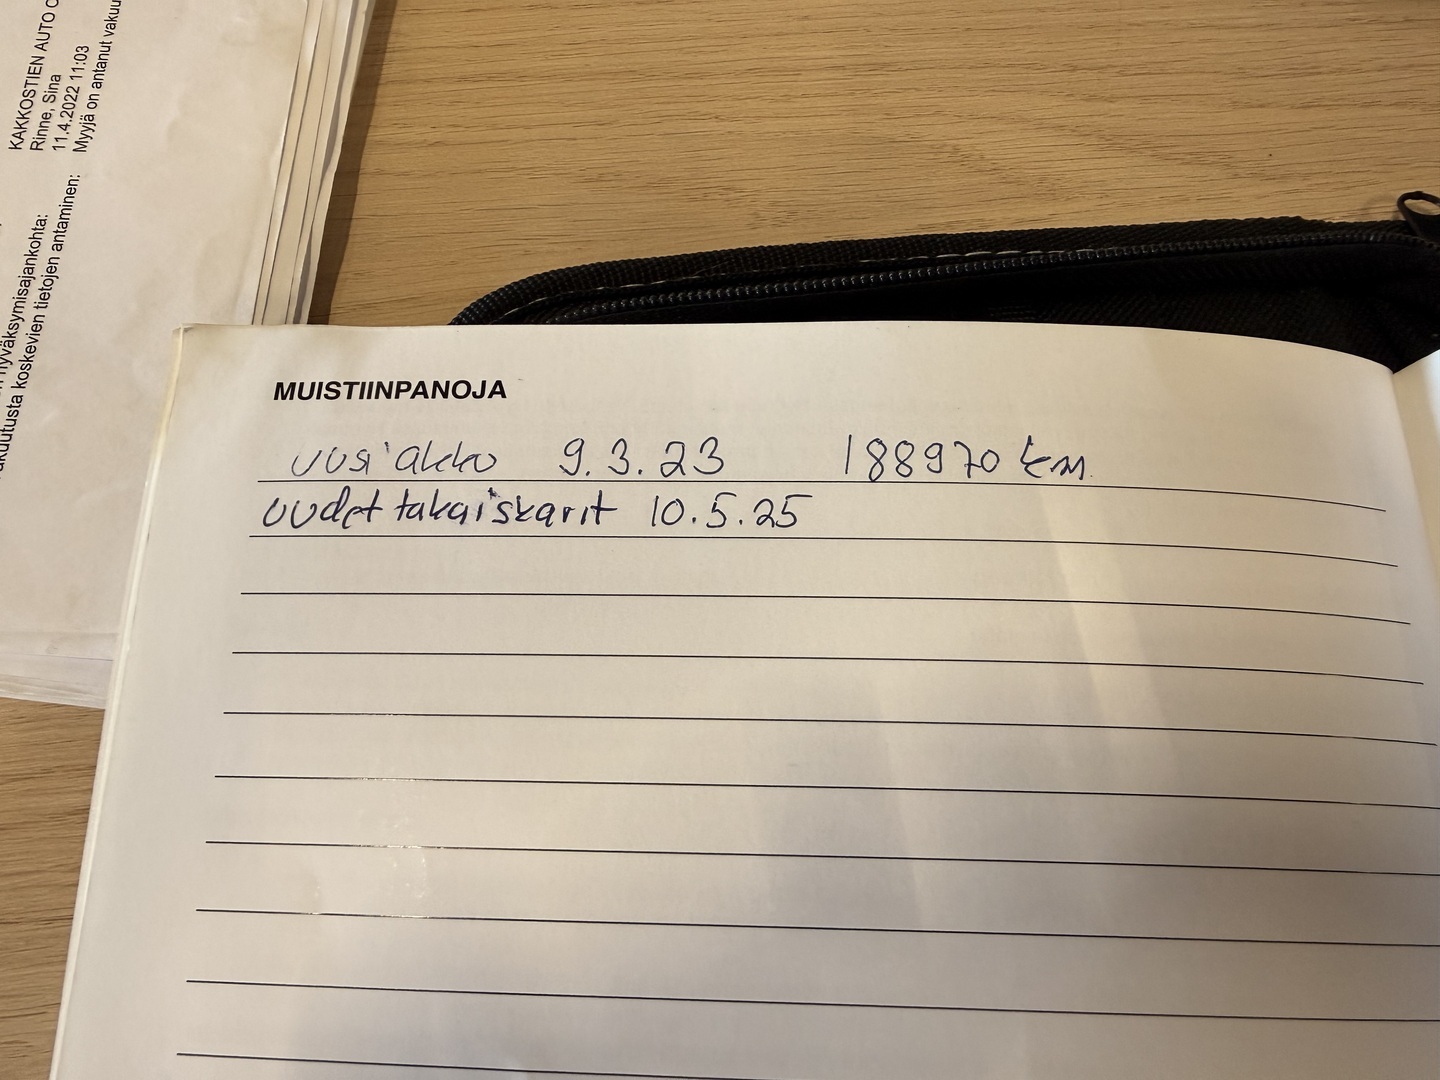 KAKKOSTIEN AUTO O
Rinne, Sina
11.4.2022 11:03
Myyjä on antanut vakuu
hyväksymisajankohta:
vakuutusta koskevien tietojen antaminen:
MUISTIINPANOJA
uusi akku 9.3.23 188970 km
uudet takaiskarit 10.5.25